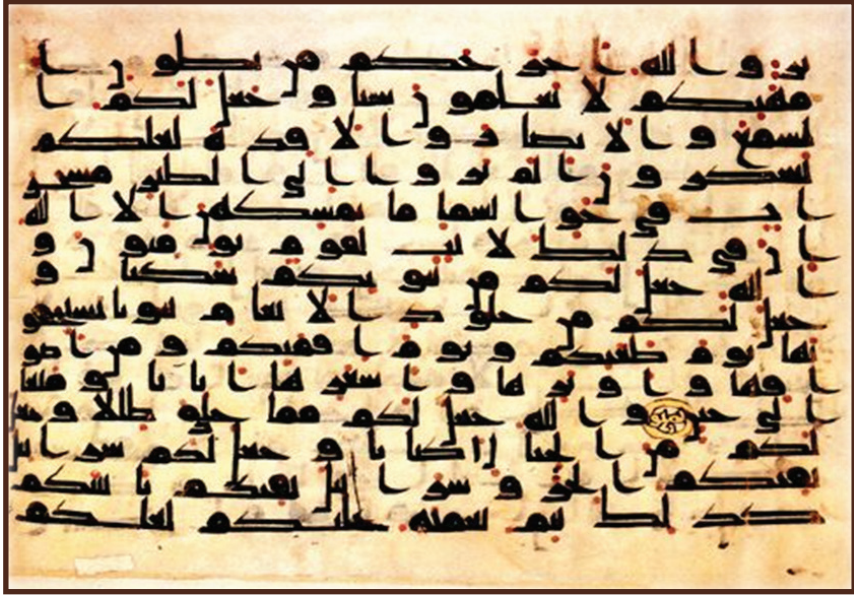 ير والله اخرجكم من بطون ا
مهتكم لا تعلمون شيا وجعل لكم ا
لسمع والابصر والافدة لعلكم
تشكرون الم يروا الى الطير مسخر
ات في جو السما ما يمسكهن الا الله
ان في ذلك لايت لقوم يومنون و
الله جعل لكم من بيوتكم سكنا و
جعل لكم من جلود الانعم بيوتا تستخفو
نها يوم ظعنكم ويوم اقمتكم ومن اصو
افها واوبرها واشعرها اثثا ومتعا
الى حين والله جعل لكم مما خلق ظللا وجعل
لكم من الجبل اكننا وجعل لكم سربيل
تقيكم الحر وسربيل تقيكم باسكم
كذلك يتم نعمته عليكم لعلكم